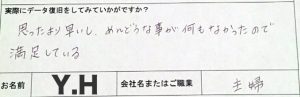 実際にデータ復旧をしてみていかがですか？
思ったより早いし、めんどうな事が何もなかったので
満足している
お名前 Y.H 会社名またはご職業 主婦